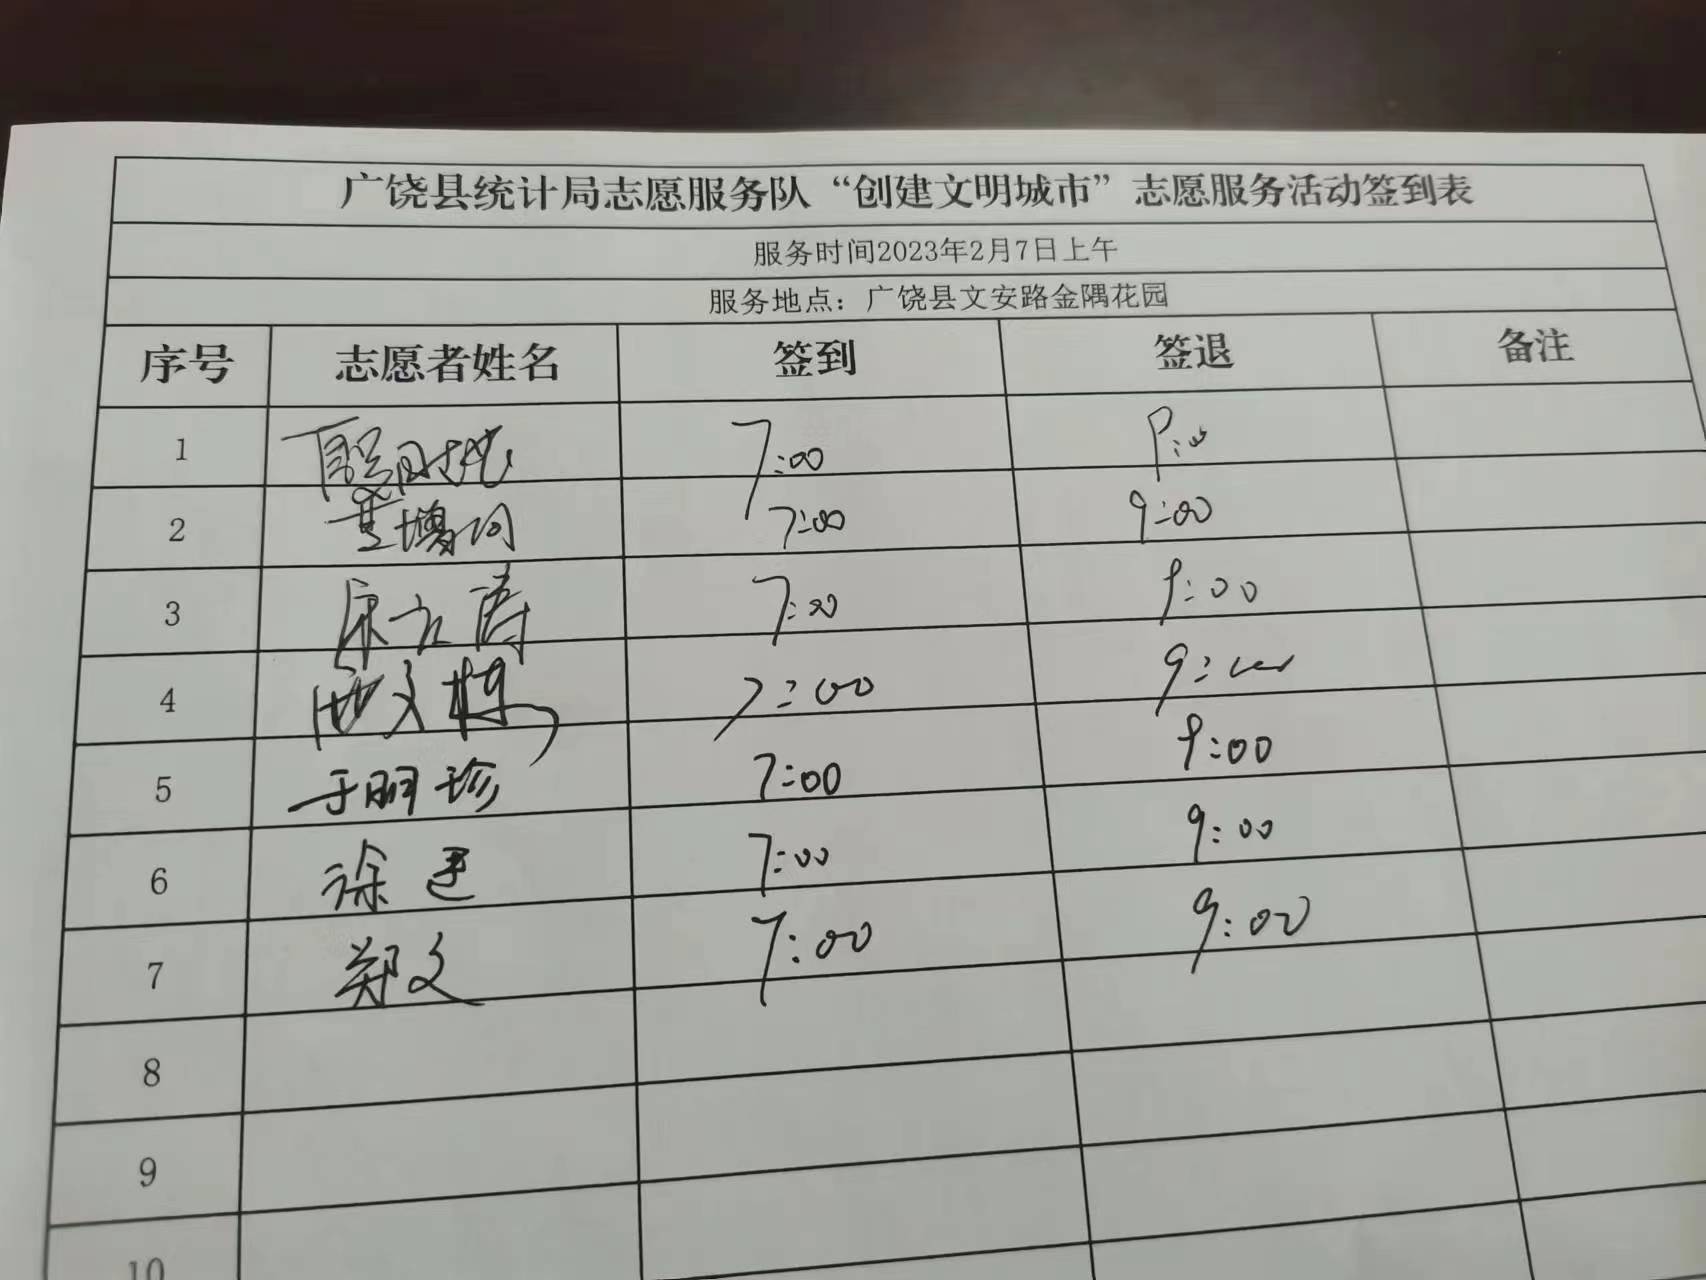 广饶县统计局志愿服务队“创建文明城市”志愿服务活动签到表
服务时间2023年2月7日上午
服务地点：广饶县文安路金隅花园
序号 志愿者姓名 签到 签退 备注
1 7:00
2 7:00 9:00
3 7:00 9:00
4 7:00 9:00
5 于明珍 7:00 9:00
6 徐 7:00 9:00
7 郑文 7:00 9:00
8
9
10